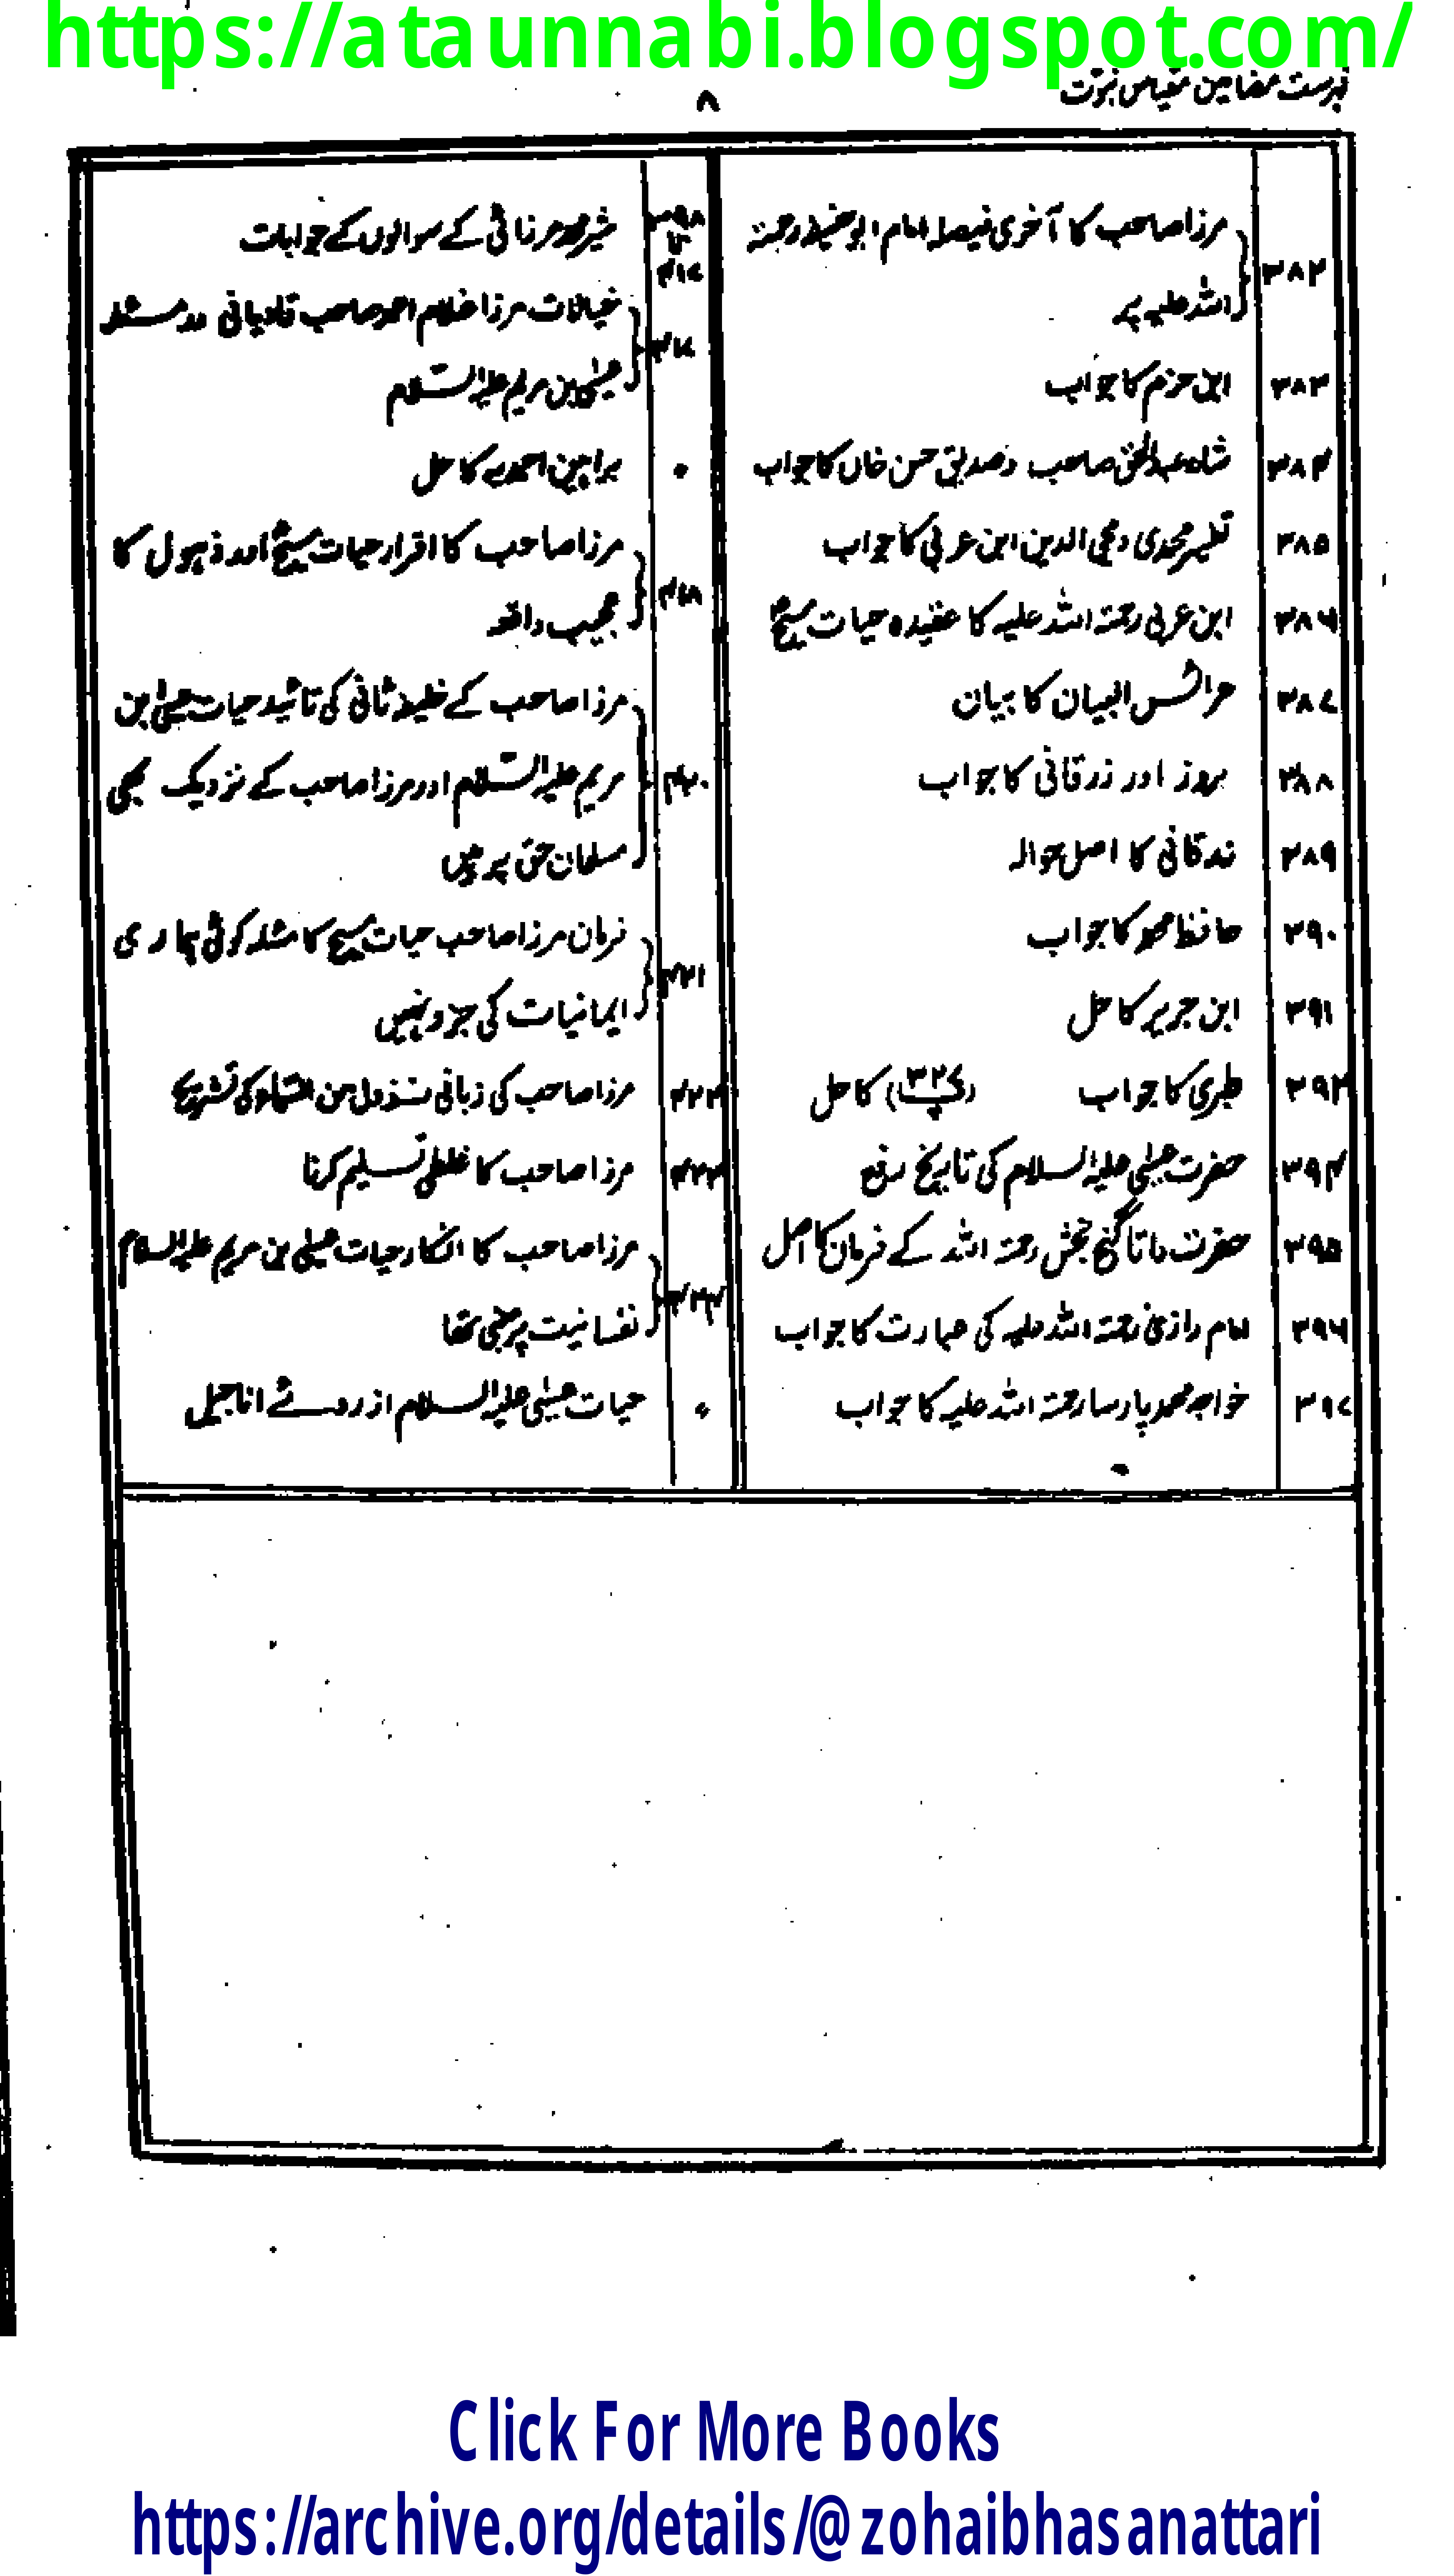 https://ataunnabi.blogspot.com/
فہرست مضامین مقیاس نبوت
۸
۳۸۲ مرزا صاحب کا آخری فیصلہ امام ابوحنیفہ رحمتہ
اللہ علیہ پر
۳۸۳ ابن حزم کا جواب
۳۸۴ شاہ عبدالحق صاحب و صدیق حسن خاں کا جواب
۳۸۵ تفسیر محمدی و محی الدین ابن عربی کا جواب
۳۸۶ ابن عربی رحمتہ اللہ علیہ کا عقیدہ حیات مسیح
۳۸۷ عرائس البیان کا بیان
۳۸۸ بروز اور زرقانی کا جواب
۳۸۹ زرقانی کا اصل حوالہ
۳۹۰ حافظ محمد کا جواب
۳۹۱ ابن جریر کا حل
۳۹۲ طبری کا جواب کا حل
۳۹۴ حضرت عیسٰی علیہ السلام کی تاریخ رفع
۳۹۵ حضرت داتا گنج بخش رحمتہ اللہ کے فرمان کا اصل
۳۹۶ امام رازی رحمتہ اللہ علیہ کی عبارت کا جواب
۳۹۷ خواجہ محمد پارسا رحمتہ اللہ علیہ کا جواب
۳۹۸ تا ۴۱۶ شیر محمد مرزائی کے سوالوں کے جوابات
۴۱۷ خیالات مرزا غلام احمد صاحب قادیانی در مسئلہ
عیسٰی بن مریم علیہ السلام
۰ براہین احمدیہ کا حل
۴۱۸ مرزا صاحب کا اقرار حیات مسیح اور ذہول کا
عجیب واقعہ
۴۲۰ مرزا صاحب کے خلیفہ ثانی کی تائید حیات عیسٰی بن
مریم علیہ السلام اور مرزا صاحب کے نزدیک بھی
مسلمان حق پر ہیں
۴۲۱ فرمان مرزا صاحب حیات مسیح کا مسئلہ کوئی ہماری
ایمانیات کی جزو نہیں
۴۲۲ مرزا صاحب کی زبانی نزول من السماء کی تشریح
۴۲۳ مرزا صاحب کا غلطی تسلیم کرنا
مرزا صاحب کا انکار حیات عیسٰی بن مریم علیہ السلام
نفسانیت پر مبنی تھا
حیات عیسٰی علیہ السلام از روئے اناجیل
Click For More Books
https://archive.org/details/@zohaibhasanattari